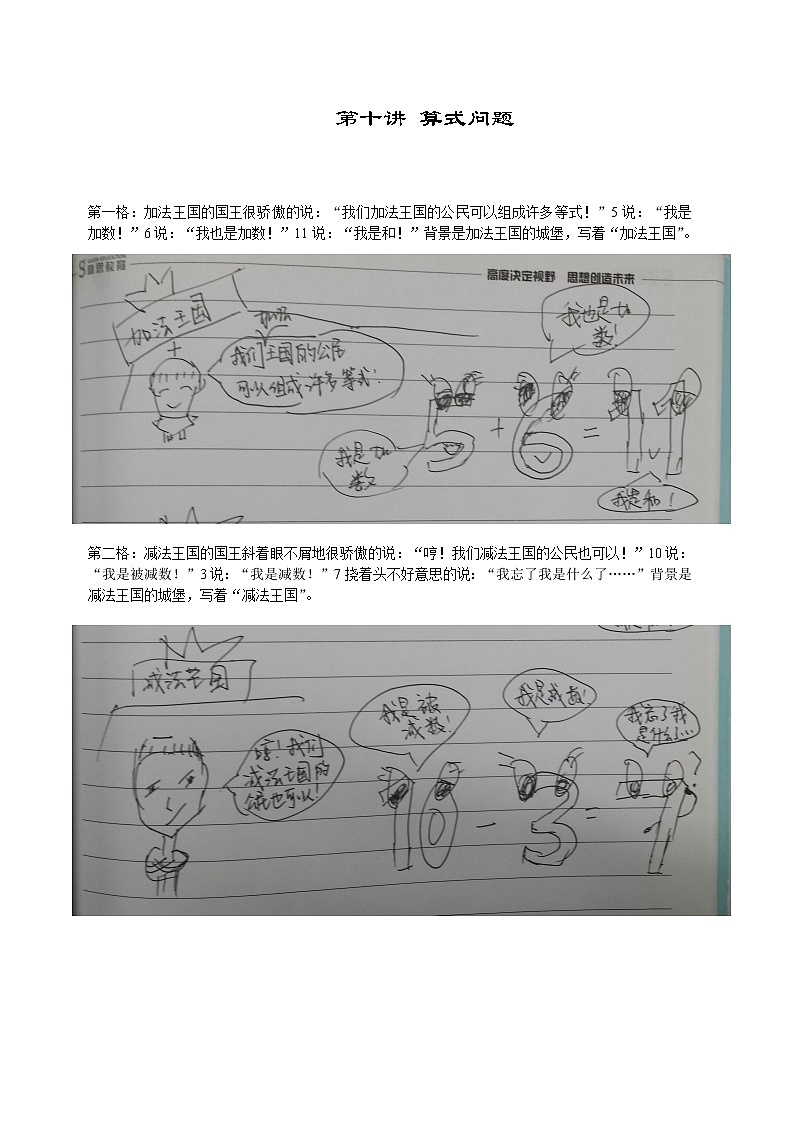 第十讲 算式问题
第一格：加法王国的国王很骄傲的说：“我们加法王国的公民可以组成许多等式！”5 说：“我是
加数！”6 说：“我也是加数！”11 说：“我是和！”背景是加法王国的城堡，写着“加法王国”。
高思教育
高度决定视野 思想创造未来
加法王国
加法
我们王国的公民
可以组成许多等式！
我也是加
数！
我是加
数
5 + 6 = 11
我是和！
第二格：减法王国的国王斜着眼不屑地很骄傲的说：“哼！我们减法王国的公民也可以！”10 说：
“我是被减数！”3 说：“我是减数！”7 挠着头不好意思的说：“我忘了我是什么了……”背景是
减法王国的城堡，写着“减法王国”。
减法王国
哼！我们
减法王国的
公民也可以！
我是被
减数！
我是减数！
我忘了我
是什么了…
10 - 3 = 7
?